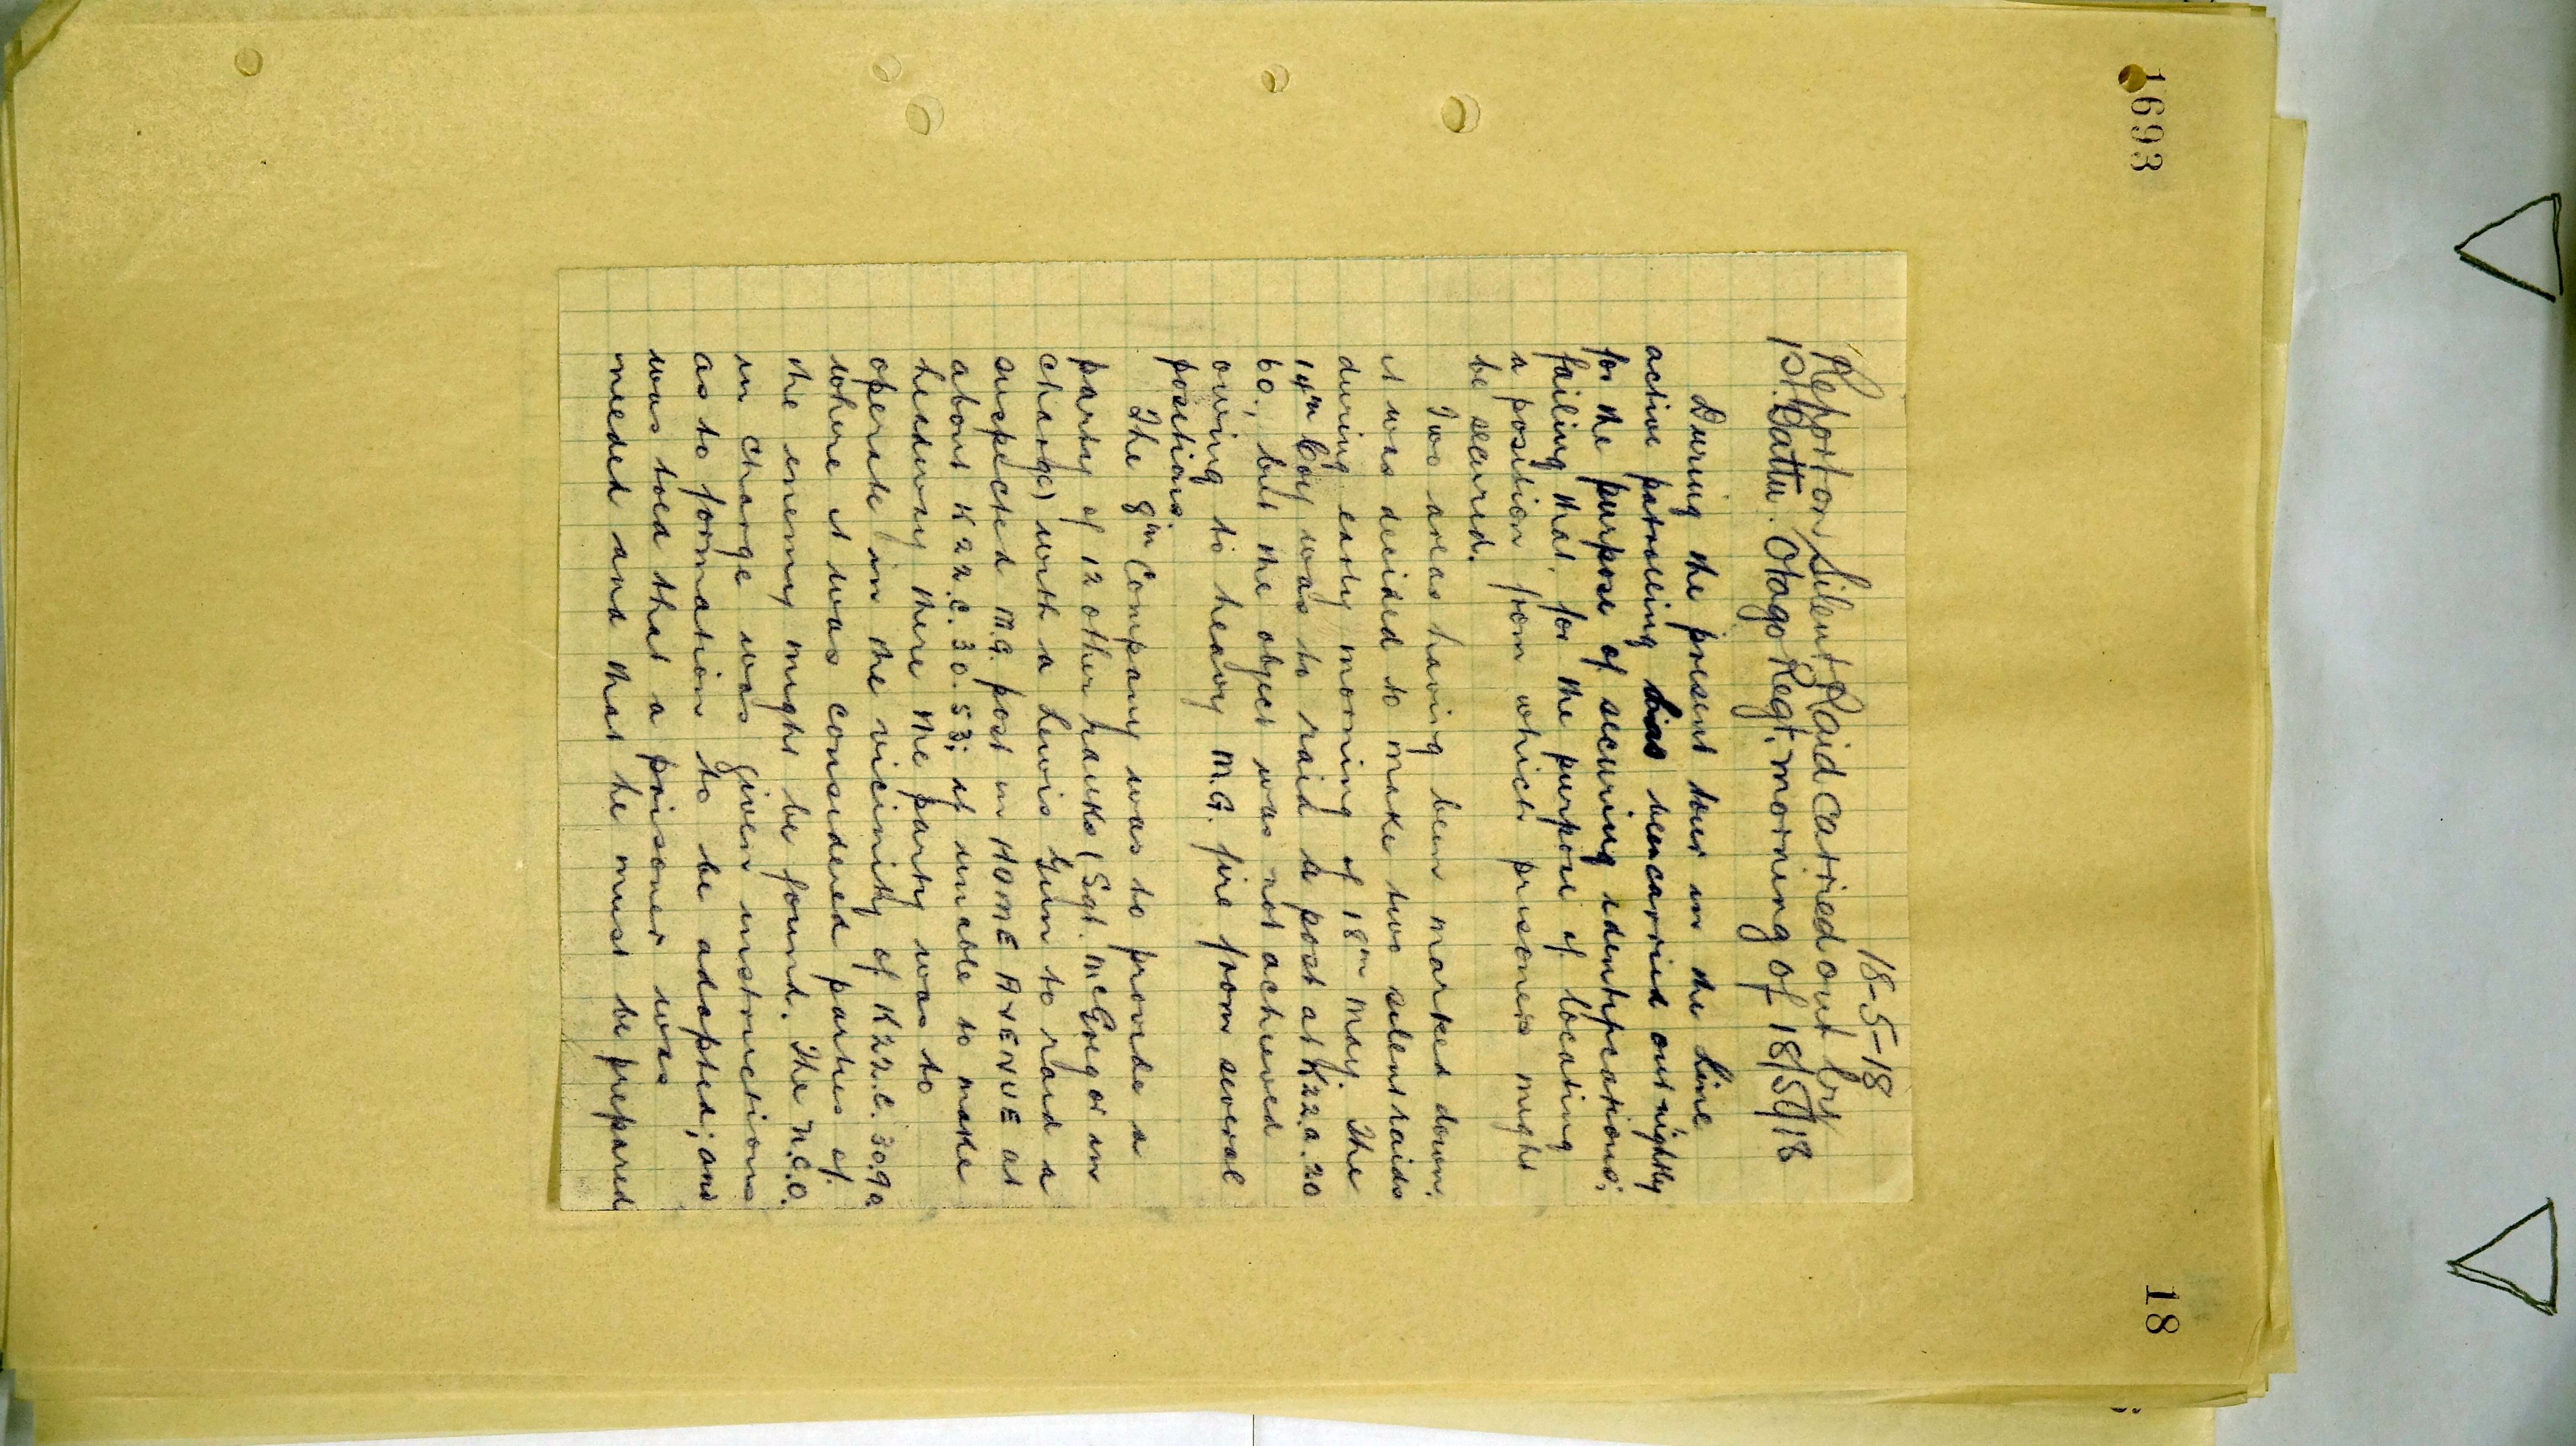 1693
18
18-5-18
Report on Silent Raid carried out by
1st Battn. Otago Regt. morning of 18/5/18
During the present tour in the line
active patrolling has been carried out nightly
for the purpose of securing identifications;
failing that, for the purpose of locating
a position from which prisoners might
be secured.
Two areas having been marked down,
it was decided to make two silent raids
during early morning of 18th May. The
14th Coy was to raid a post at K22.a.20
60., but the object was not achieved
owing to heavy M.G. fire from several
positions.
The 8th Company was to provide a
party of 12 other ranks (Sgt. McGregor in
charge) with a Lewis Gun to raid a
suspected M.G. post in HOME AVENUE at
about K22.c.30.53; if unable to make
headway there the party was to
operate in the vicinity of K22.c.30.90.
where it was considered parties of
the enemy might be found. The N.C.O.
in charge was given instructions
as to formation to be adopted; and
was told that a prisoner was
needed and that he must be prepared